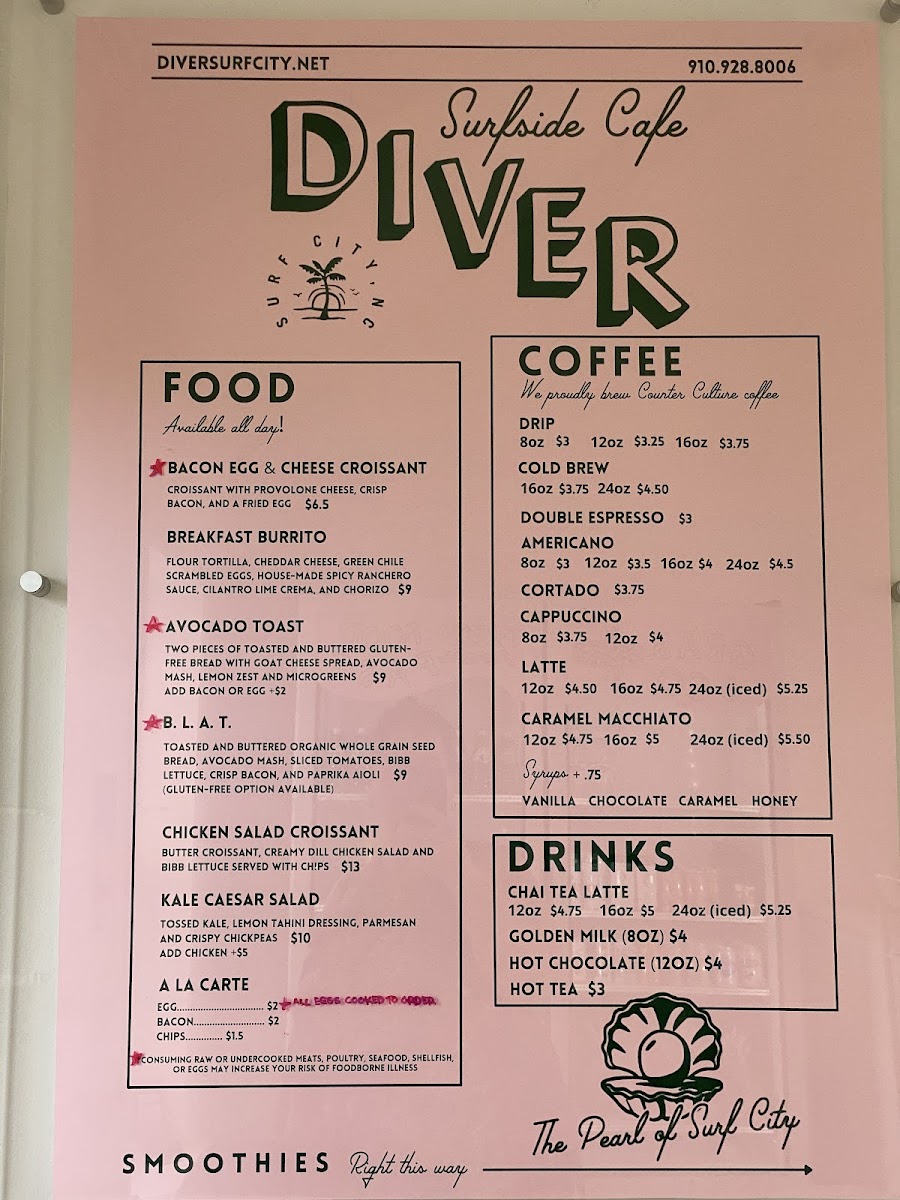 DIVERSURFCITY.NET
910.928.8006
Surfside Cafe
DIVER
SURF CITY, NC
FOOD
Available all day!
BACON EGG & CHEESE CROISSANT
CROISSANT WITH PROVOLONE CHEESE, CRISP
BACON, AND A FRIED EGG $6.5
BREAKFAST BURRITO
FLOUR TORTILLA, CHEDDAR CHEESE, GREEN CHILE
SCRAMBLED EGGS, HOUSE-MADE SPICY RANCHERO
SAUCE, CILANTRO LIME CREMA, AND CHORIZO $9
AVOCADO TOAST
TWO PIECES OF TOASTED AND BUTTERED GLUTEN-
FREE BREAD WITH GOAT CHEESE SPREAD, AVOCADO
MASH, LEMON ZEST AND MICROGREENS $9
ADD BACON OR EGG +$2
B. L. A. T.
TOASTED AND BUTTERED ORGANIC WHOLE GRAIN SEED
BREAD, AVOCADO MASH, SLICED TOMATOES, BIBB
LETTUCE, CRISP BACON, AND PAPRIKA AIOLI $9
(GLUTEN-FREE OPTION AVAILABLE)
CHICKEN SALAD CROISSANT
BUTTER CROISSANT, CREAMY DILL CHICKEN SALAD AND
BIBB LETTUCE SERVED WITH CHIPS $13
KALE CAESAR SALAD
TOSSED KALE, LEMON TAHINI DRESSING, PARMESAN
AND CRISPY CHICKPEAS $10
ADD CHICKEN +$5
A LA CARTE
EGG................................ $2 ALL EGGS COOKED TO ORDER.
BACON.......................... $2
CHIPS.............. $1.5
*CONSUMING RAW OR UNDERCOOKED MEATS, POULTRY, SEAFOOD, SHELLFISH,
OR EGGS MAY INCREASE YOUR RISK OF FOODBORNE ILLNESS
COFFEE
We proudly brew Counter Culture coffee
DRIP
8oz $3 12oz $3.25 16oz $3.75
COLD BREW
16oz $3.75 24oz $4.50
DOUBLE ESPRESSO $3
AMERICANO
8oz $3 12oz $3.5 16oz $4 24oz $4.5
CORTADO $3.75
CAPPUCCINO
8oz $3.75 12oz $4
LATTE
12oz $4.50 16oz $4.75 24oz (iced) $5.25
CARAMEL MACCHIATO
12oz $4.75 16oz $5 24oz (iced) $5.50
Syrups + .75
VANILLA CHOCOLATE CARAMEL HONEY
DRINKS
CHAI TEA LATTE
12oz $4.75 16oz $5 24oz (iced) $5.25
GOLDEN MILK (8OZ) $4
HOT CHOCOLATE (12OZ) $4
HOT TEA $3
The Pearl of Surf City
SMOOTHIES Right this way